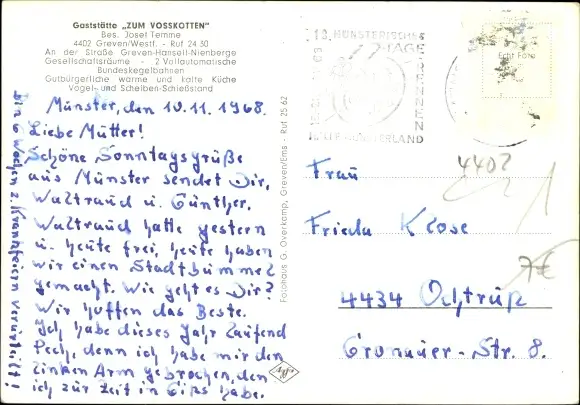 Gaststätte „ZUM VOSSKOTTEN"
Bes. Josef Temme
4402 Greven/Westf. - Ruf 24 50
An der Straße Greven-Hansell-Nienberge
Gesellschaftsräume - 2 Vollautomatische
Bundeskegelbahnen
Gutbürgerliche warme und kalte Küche
Vogel- und Scheiben-Schießstand
Münster, den 10.11.1968.
Liebe Mutter!
Schöne Sonntagsgrüße
aus Münster sendet Dir,
Waltraud u. Günther.
Waltraud hatte gestern
u. heute frei, heute haben
wir einen Stadtbummel
gemacht. Wie geht es Dir?
Wir hoffen das Beste.
Ich habe dieses Jahr laufend
Pech, denn ich habe mir den
linken Arm gebrochen, den
ich zur Zeit in Gips habe.
Die 6 Wochen z. Krankfeiern
Fotohaus G. Overkamp, Greven/Ems - Ruf 25 62
MÜNSTERISCHES
TAGE
RENNEN
HALLE MÜNSTERLAND
Echt Foto
4402
Frau
Frieda Klose
7€
4434 Ochtrup
Gronauer-Str. 8.